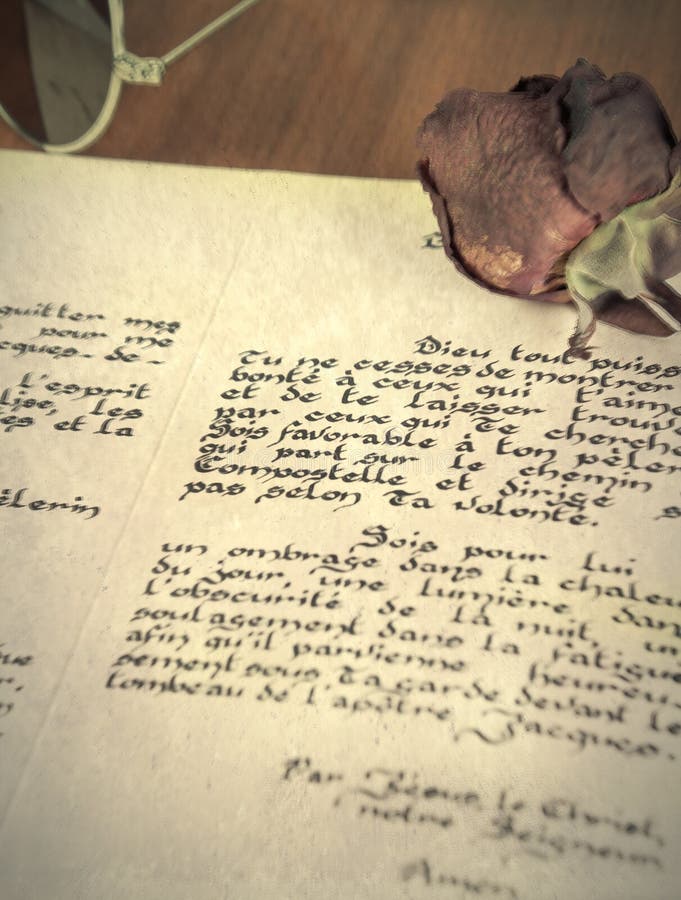 quitter mes
pour me
cques-de-
l'esprit
lise, les
es et la
èlerin
Dieu tout puiss
Tu ne cesses de montrer
bonté à ceux qui t'aime
et de te laisser trouve
par ceux qui Te cherche
Sois favorable à ton pèler
qui part sur le chemin
Compostelle et dirige s
pas selon Ta volonté.
Sois pour lui
un ombrage dans la chaleu
du jour, une lumière dan
l'obscurité de la nuit, un
soulagement dans la fatigue
afin qu'il parvienne heureu-
sement sous Ta garde devant le
tombeau de l'apôtre Jacques.
Par Jésus le Christ,
notre Seigneur
Amen